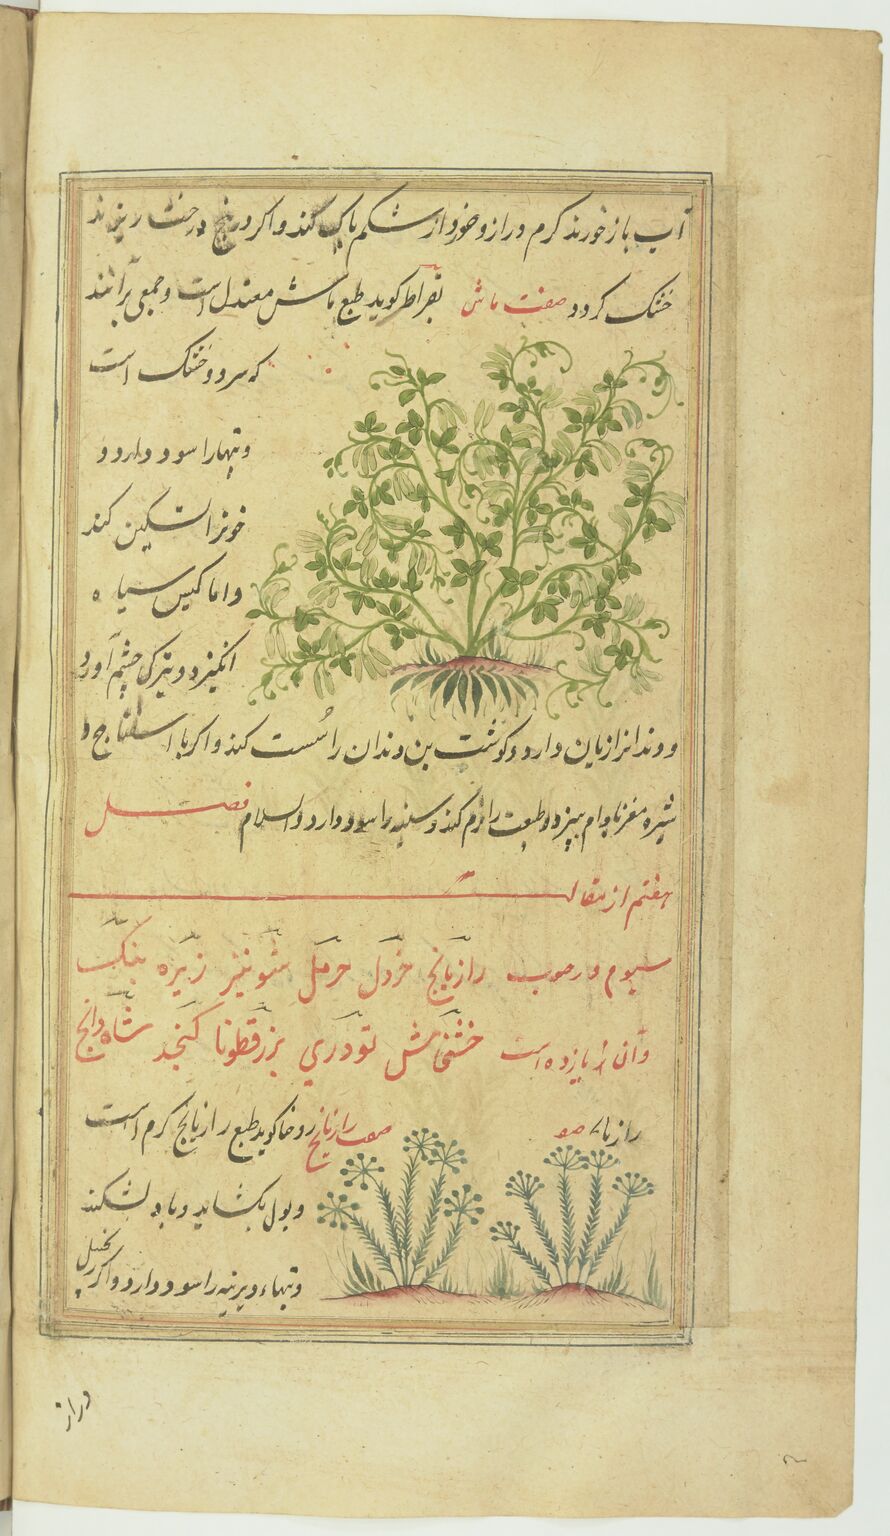 آب باز خورند کرم دراز و خرد از شکم پاک کند و اکر در بیخ درخت ریزند
خشک کردد صفت ماش بقراط کوید طبع ماش معتدل است و جمعی برآنند
که سرد و خشک است
و تبها را سود دارد و
خونرا تسکین کند
و اما کیس سیاه
انکیزد و تیزکی چشم آورد
و دندانرا زیان دارد و کوشت بن دندان را سست کند و اکر با اسفناج و
شیره مغز بادام بپزد و طبیعت را نرم کند و سینه را سود دارد والسلام فصل
هفتم از مقاله
سیوم در حبوب رازیانج خردل حرمل شونیز زیره بنک
و آن یازده است خشخاش تودری بزرقطونا کنجد شاه دانج
رازیانه صفت رازیانج روفا کوید طبع رازیانج کرم است
و بول بکشاید و باد بشکند
و تبهاء دیرینه را سود دارد و اکر
دراز